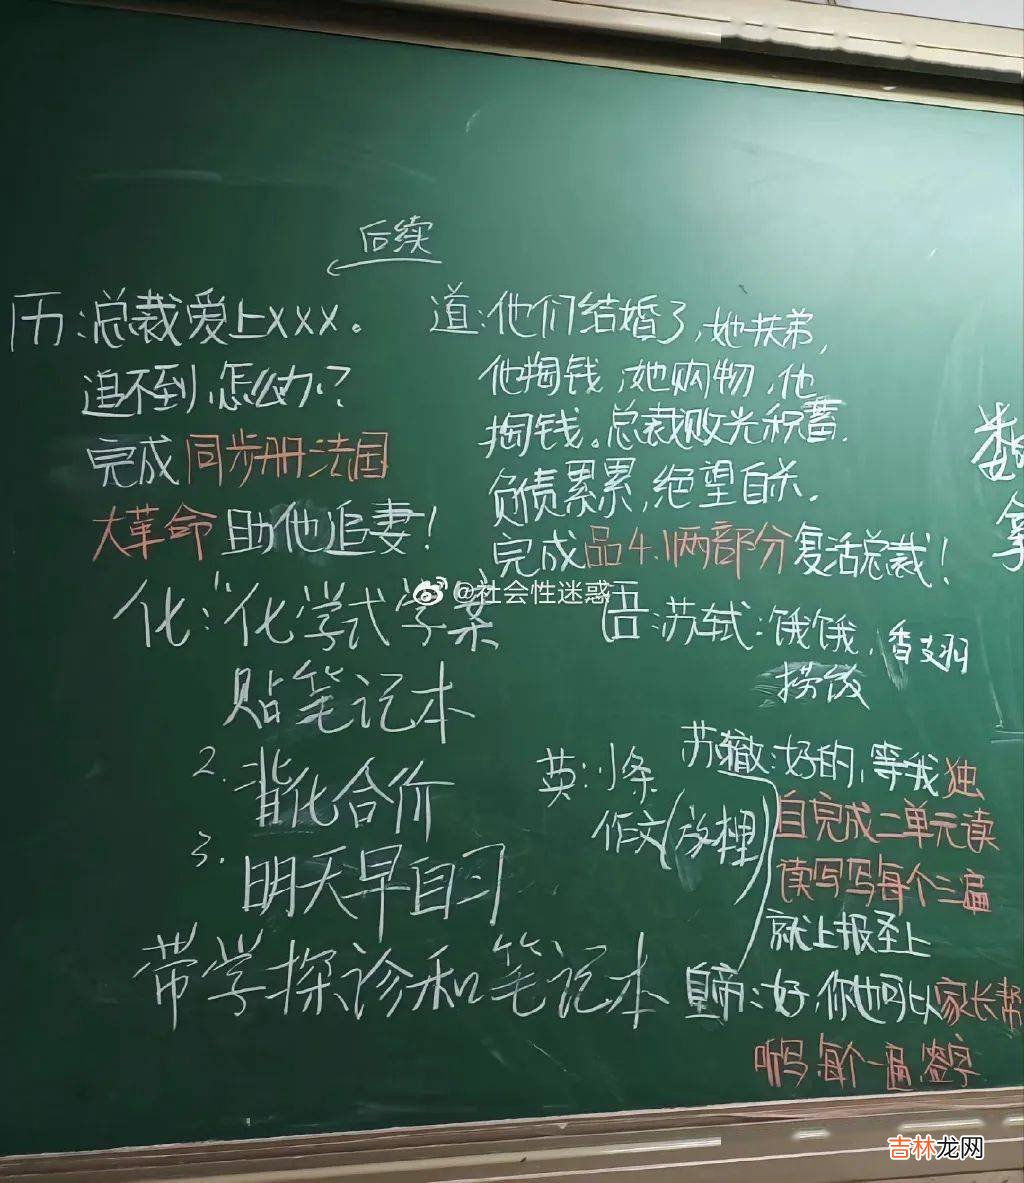 后续
历:总裁爱上XXX。
追不到,怎么办?
完成同步册法国
大革命助他追妻!
道:他们结婚了,她扶弟,
他掏钱,她购物,他
掏钱。总裁败光积蓄.
负债累累,绝望自杀.
完成品4.1两部分复活总裁!
化:1.化学式学案
贴笔记本
2.背化合价
3.明天早自习
带学探诊和笔记本
@社会性迷惑
语:苏轼:饿饿,香翅
捞饭
苏辙:好的,等我独
自完成二单元读
读写写每个三遍
就上报圣上
皇帝:好 你也可以家长帮
听写,每个一遍,签字
英:小条
作文(放裡)
数
拿
吉林龙网